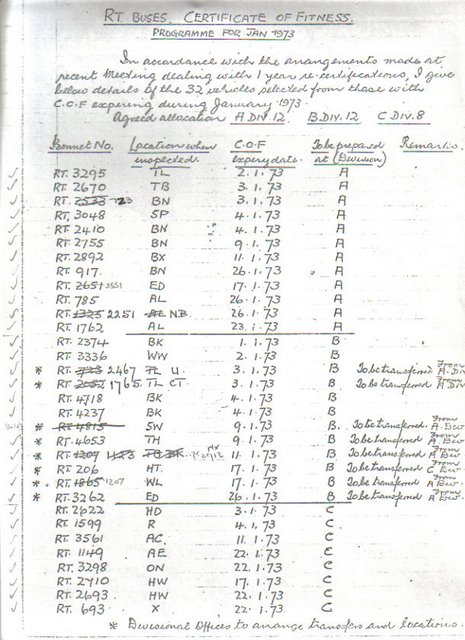 RT. BUSES. CERTIFICATE OF FITNESS.
PROGRAMME FOR JAN 1973
In accordance with the arrangements made at
recent meeting dealing with 1 year re-certifications, I give
below details of the 32 vehicles selected from those with
C.O.F expiring during January 1973.
Agreed allocation A DIV. 12 B.DIV. 12 C DIV. 8
Bonnet No. Location when inspected. C.O.F expiry date. To be prepared at (Division) Remarks.
RT. 3295 TL 2.1.73 A
RT. 2670 TB 3.1.73 A
RT. 2533 723 BN 3.1.73 A
RT. 3048 SP 4.1.73 A
RT. 2410 BN 4.1.73 A
RT. 2755 BN 9.1.73 A
RT. 2892 BX 11.1.73 A
RT. 917. BN 26.1.73 A
RT. 2651 3551 ED 17.1.73 A
RT. 785 AL 26.1.73 A
RT. 1325 2251 AL NB 26.1.73 A
RT. 1762 AL 23.1.73 A
RT. 2374 BK 1.1.73 B
RT. 3336 WW 2.1.73 B
* RT. 2467 TL U. 3.1.73 B To be transferred From A.Div
* RT. 2052 1765 TL CT 3.1.73 B To be transferred From A Div
RT. 4718 BK 4.1.73 B
RT. 4237 BK 4.1.73 B
* RT. 4815 SW 9.1.73 B. To be transferred From A.Div
* RT. 4653 TH 9.1.73 B To be transferred From A.Div
* RT. 1207 11.1.73 B To be transferred From A Div
* RT. 206 HT. 17.1.73 B To be transferred From C Div
* RT. 1865 1207 WL 17.1.73 B To be transferred From A Div
* RT. 3262 ED 26.1.73 B To be transferred From A Div
RT. 2622 HD 3.1.73 C
RT. 1599 R 4.1.73 C
RT. 3561 AC. 11.1.73 C
RT. 1149 AE 22.1.73 C
RT. 3298 ON 22.1.73 C
RT. 2710 HW 17.1.73 C
RT. 2693 HW 22.1.73 C
RT. 693 X 22.1.73 C
* Divisional Offices to arrange transfers and locations.